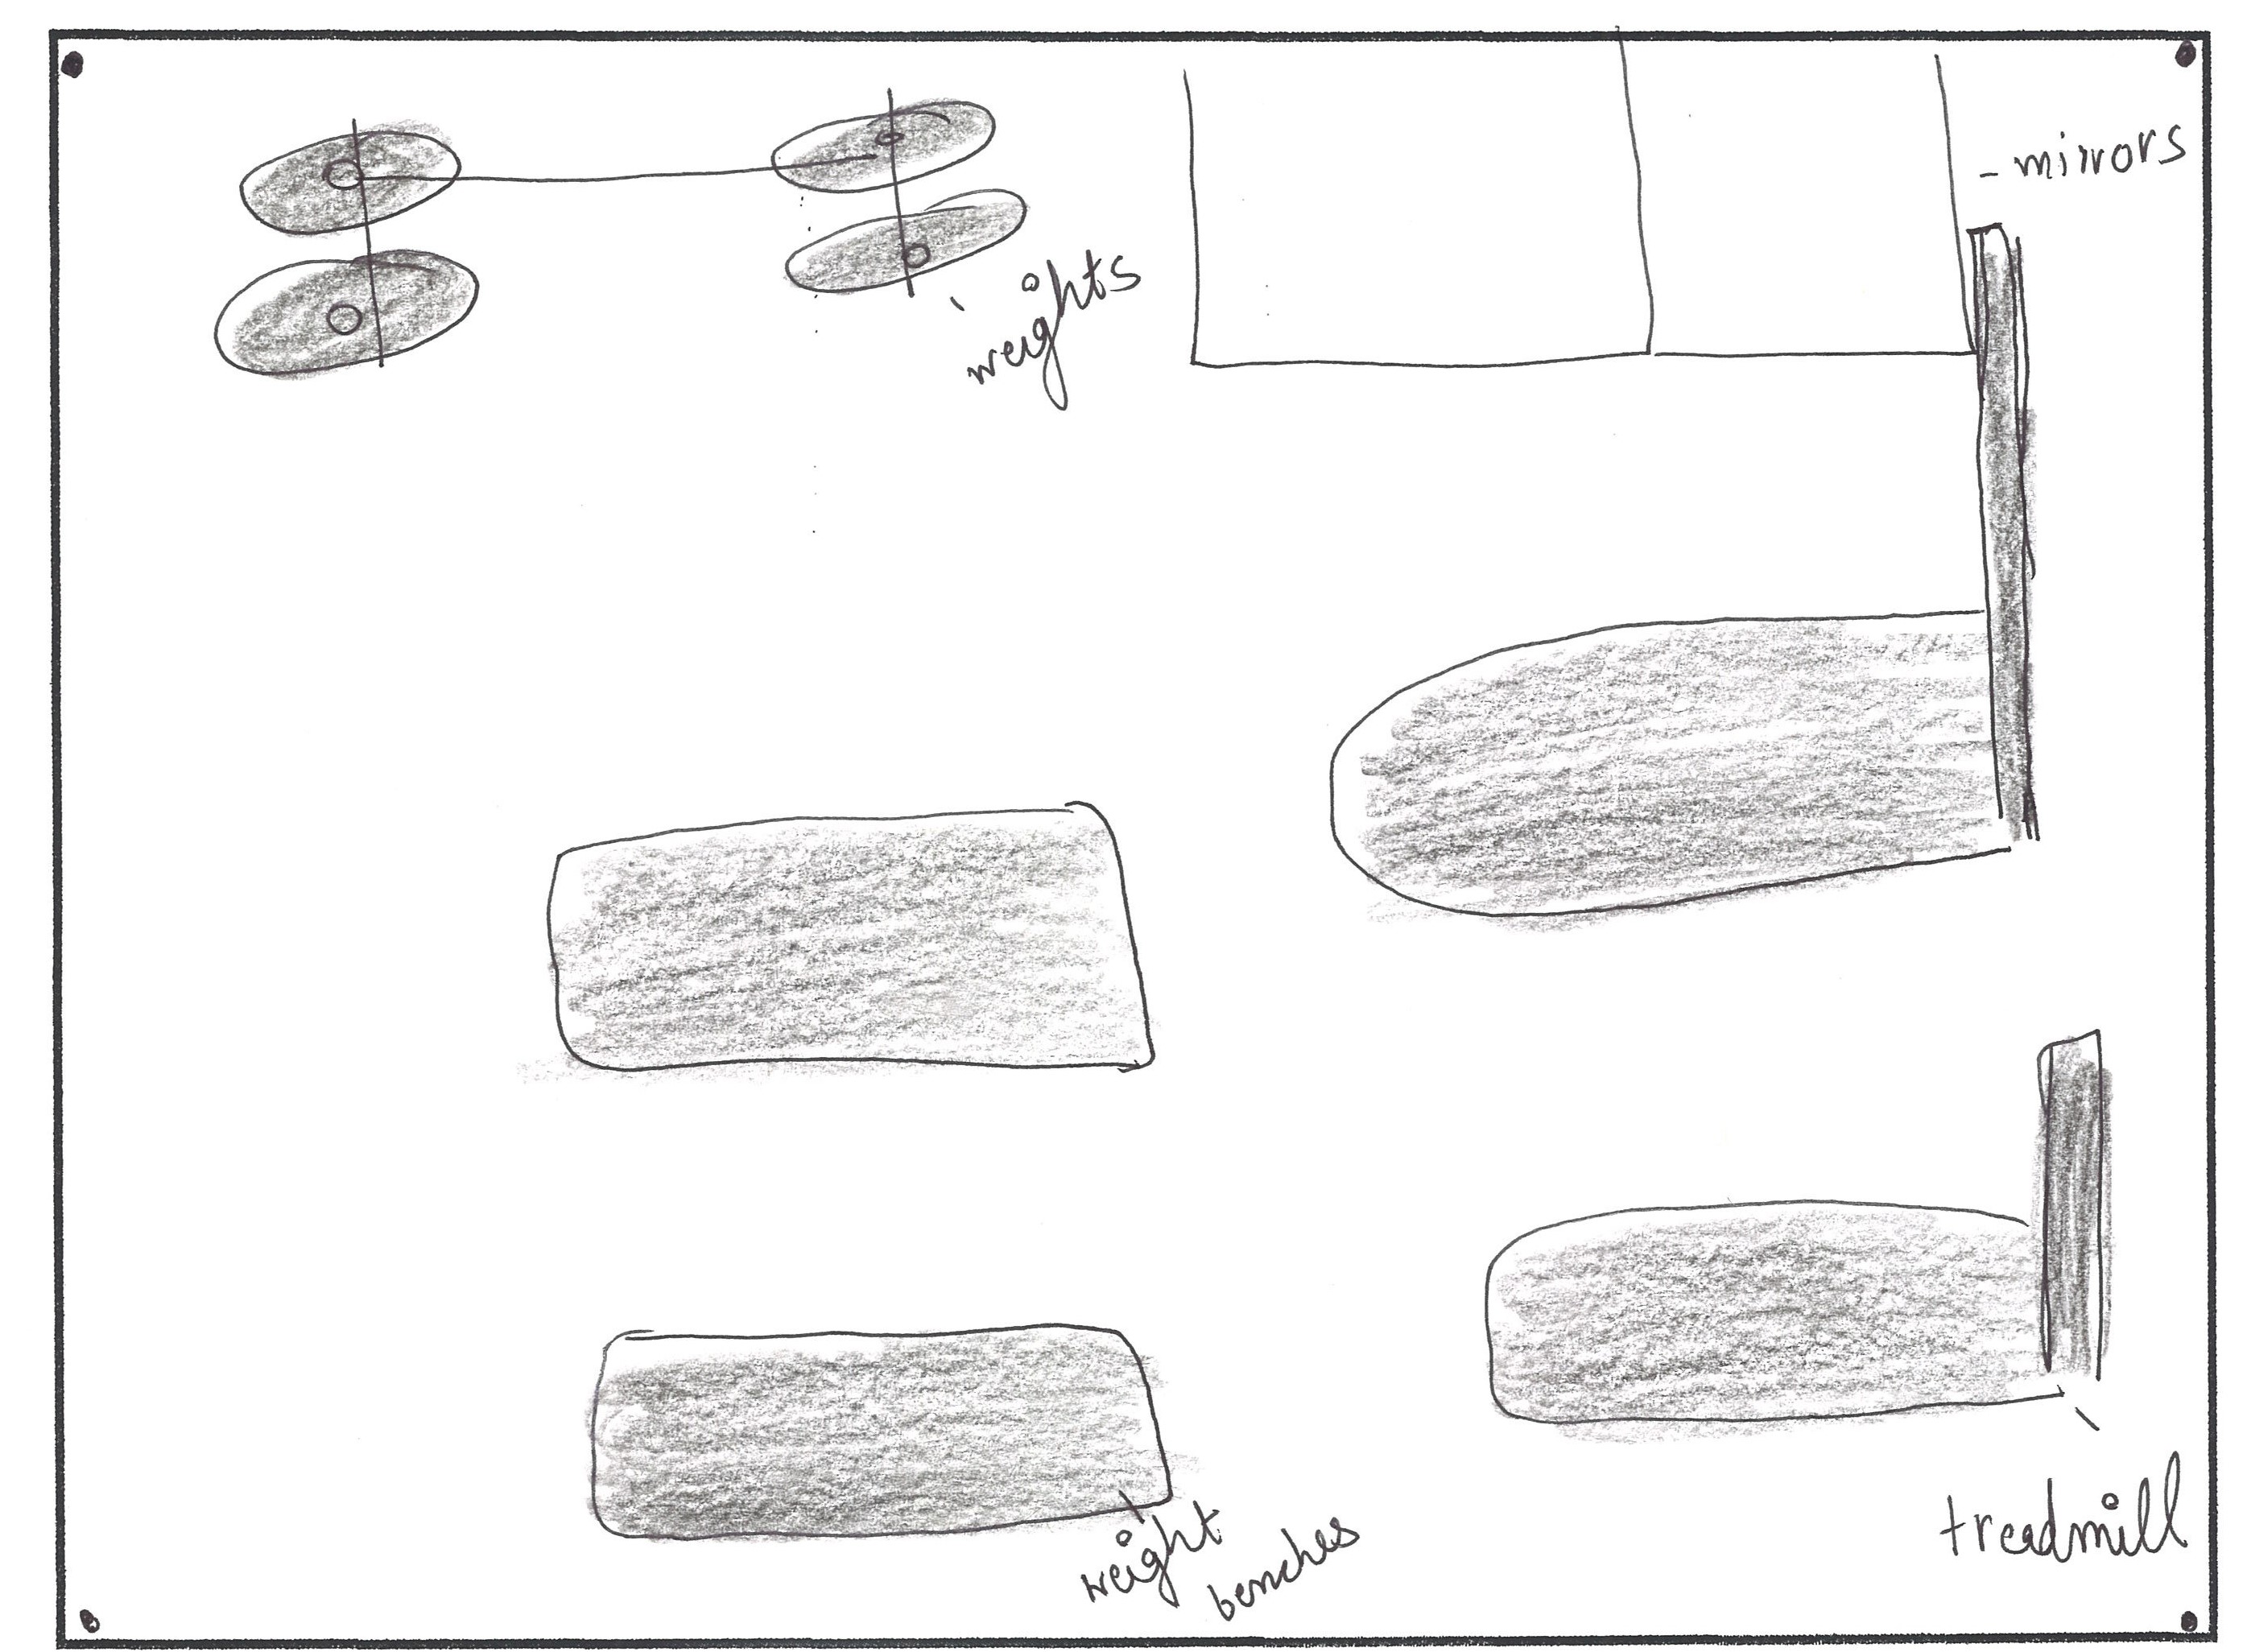 - mirrors
weights
weight
benches
treadmill